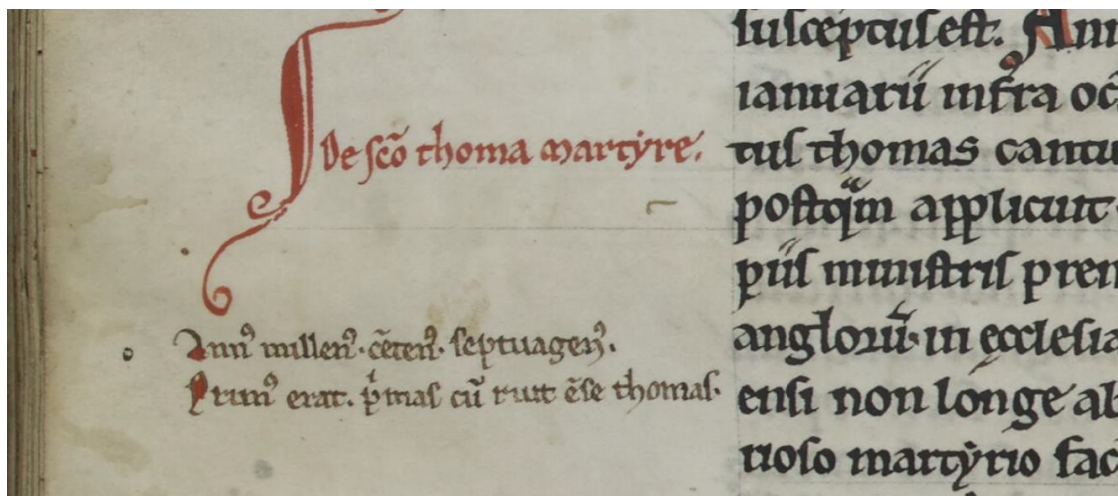 De sc̄o thoma martyre.
Annꝰ millenꝰ· cētenꝰ· septuagenꝰ.
Primꝰ erat. pͥmas cū ruit ēse thomas·
susceptus est. An
ianuarii infra oc
tus thomas cantu
postqͣm applicuit
piis ministris pren
anglorū· in ecclesia
ensi non longe ab
rioso martyrio fac